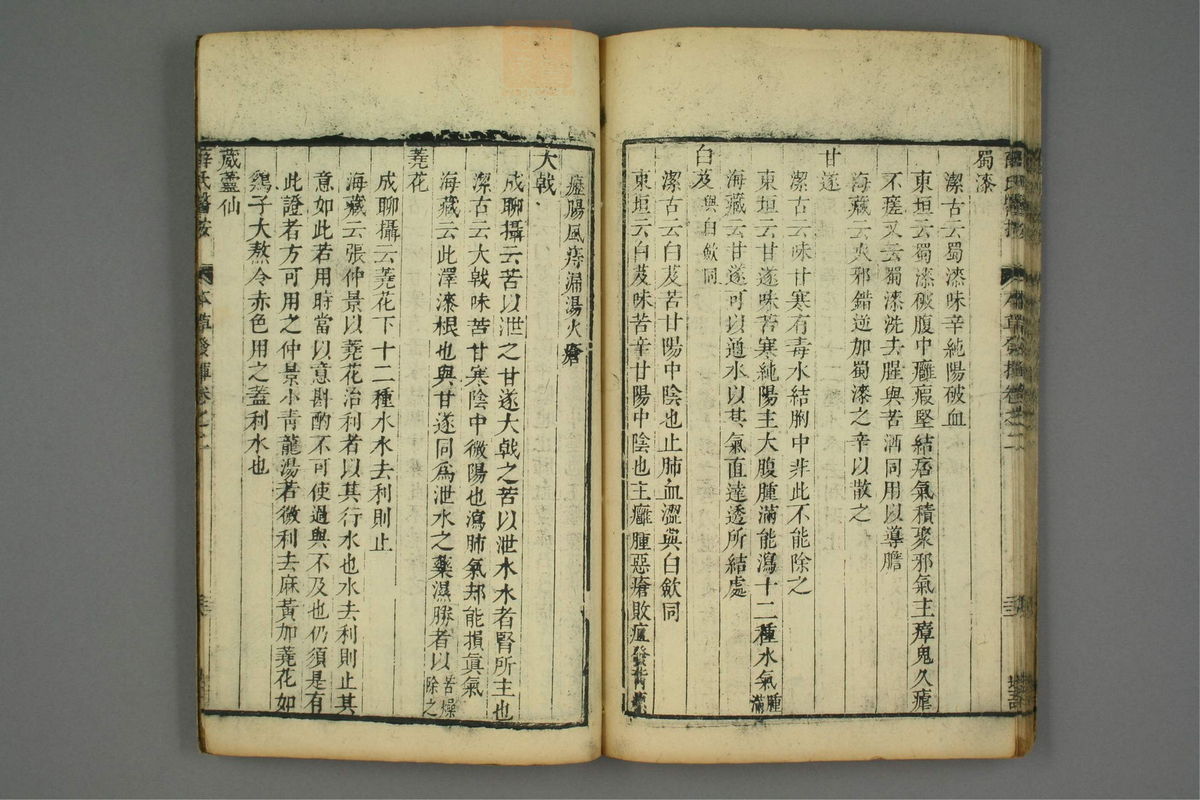 蜀漆
潔古云蜀漆味辛純陽破血
東垣云蜀漆破腹中癰瘕堅結痞氣積聚邪氣主瘴鬼久瘧
不瘥又云蜀漆洗去腥與苦酒同用以導膽
海藏云火邪錯逆加蜀漆之辛以散之
甘遂
潔古云味甘寒有毒水結胸中非此不能除之
東垣云甘遂味苦寒純陽主大腹腫滿能瀉十二種水氣腫滿
海藏云甘遂可以通水以其氣直達透所結處
白芨與白歛同
潔古云白芨苦甘陽中陰也止肺血澀與白歛同
東垣云白芨味苦辛甘陽中陰也主癰腫惡瘡敗疽發背
癧腸風痔漏湯火瘡
大戟
成聊攝云苦以泄之甘遂大戟之苦以泄水水者腎所主也
潔古云大戟味苦甘寒陰中微陽也瀉肺氣却能損眞氣
海藏云此澤漆根也與甘遂同爲泄水之藥濕勝者以苦燥除之
蕘花
成聊攝云蕘花下十二種水水去利則止
海藏云張仲景以蕘花治利者以其行水也水去利則止其
意如此若用時當以意斟酌不可使過與不及也仍須是有
此證者方可用之仲景小青龍湯若微利去麻黃加蕘花如
鷄子大熬令赤色用之蓋利水也
葳靈仙
薛氏醫按 本草發揮卷之二